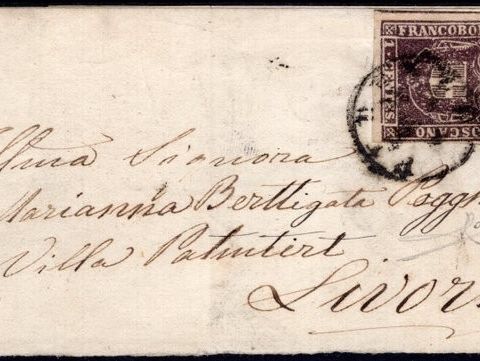 FRANCOBO
CENT. 5
TOSCANO
Illma Signora
Marianna Berttigata Poggi
Villa Patutiert
Livor